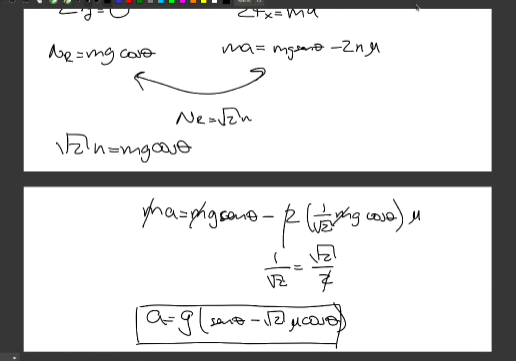 Σy=0 ΣFx=ma
NR=mg cosθ ma=mgsenθ-2nμ
NR=√2n
√2n=mgcosθ
ma=mgsenθ-2(1/√2 mg cosθ)μ
1/√2=√2/2
a=g(senθ-√2μcosθ)